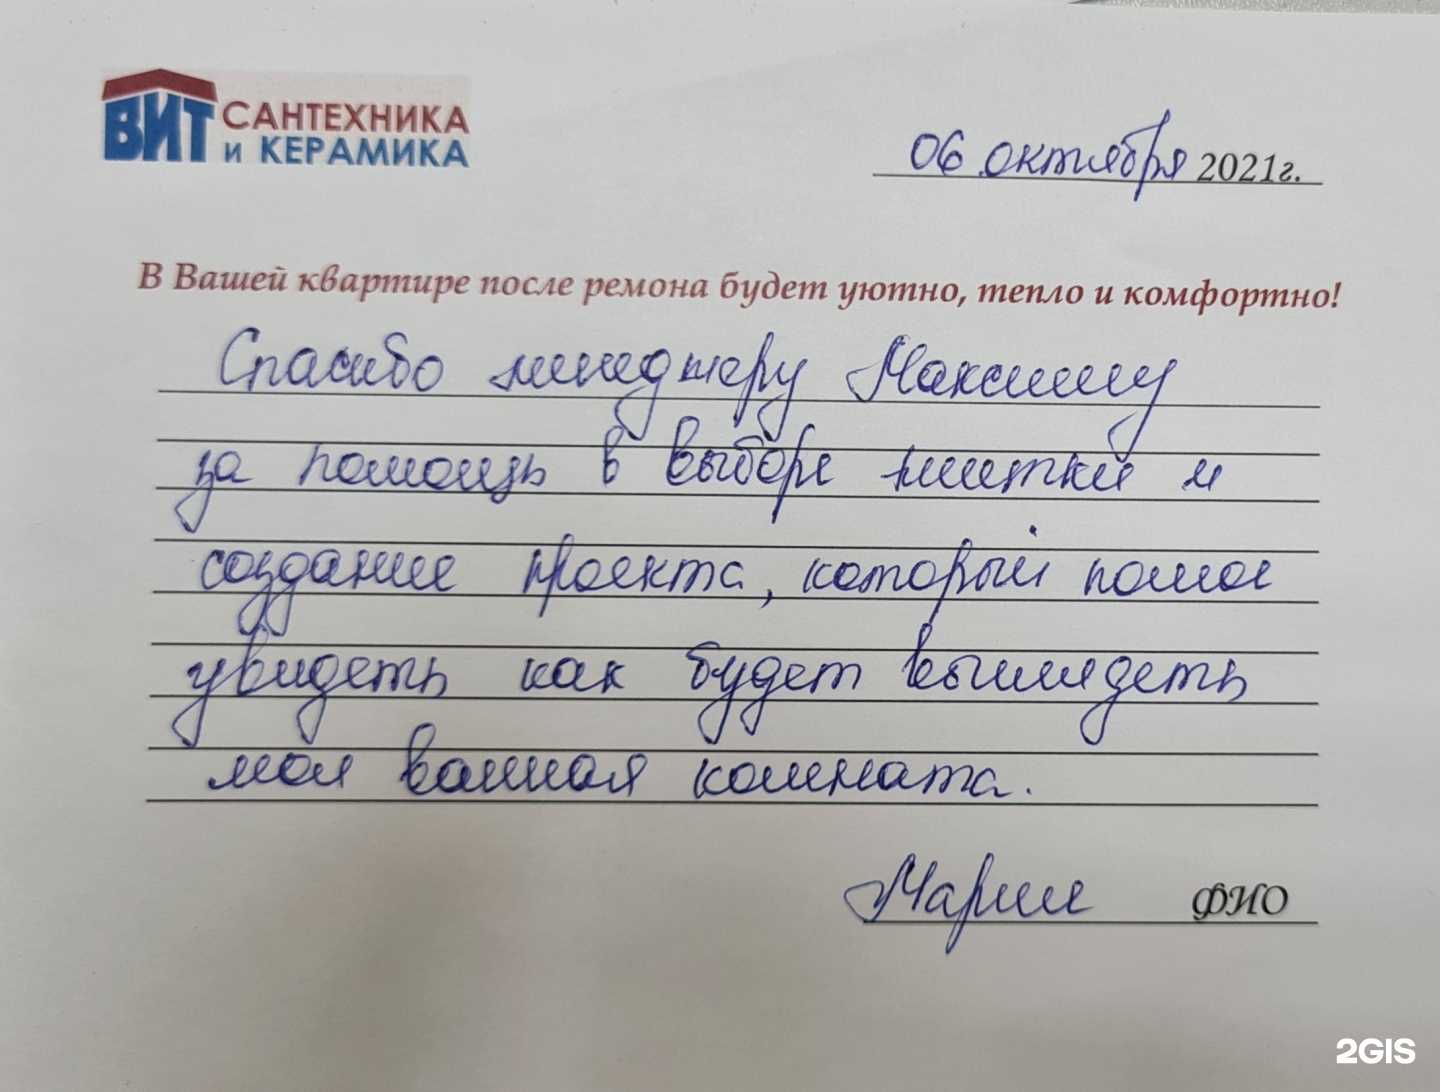 ВИТ САНТЕХНИКА
И КЕРАМИКА
06 октября 2021г.
В Вашей квартире после ремона будет уютно, тепло и комфортно!
Спасибо менеджеру Максиму
за помощь в выборе плитки и
создание проекта, который помог
увидеть как будет выглядеть
моя ванная комната.
Мария ФИО
2GIS